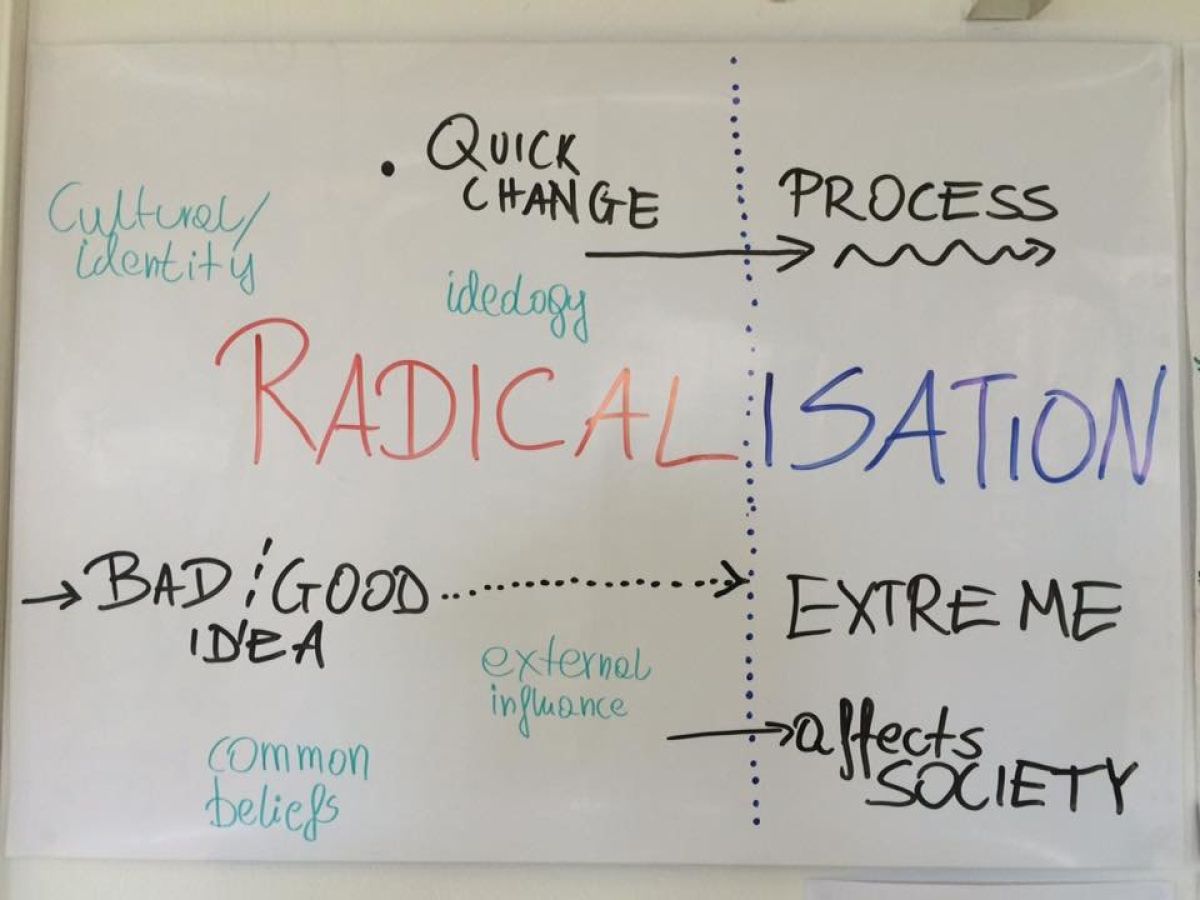 • QUICK
CHANGE
PROCESS
Cultural/
identity
ideology
RADICALISATION
BAD / GOOD
IDEA
EXTREME
external
influance
affects
SOCIETY
common
beliefs